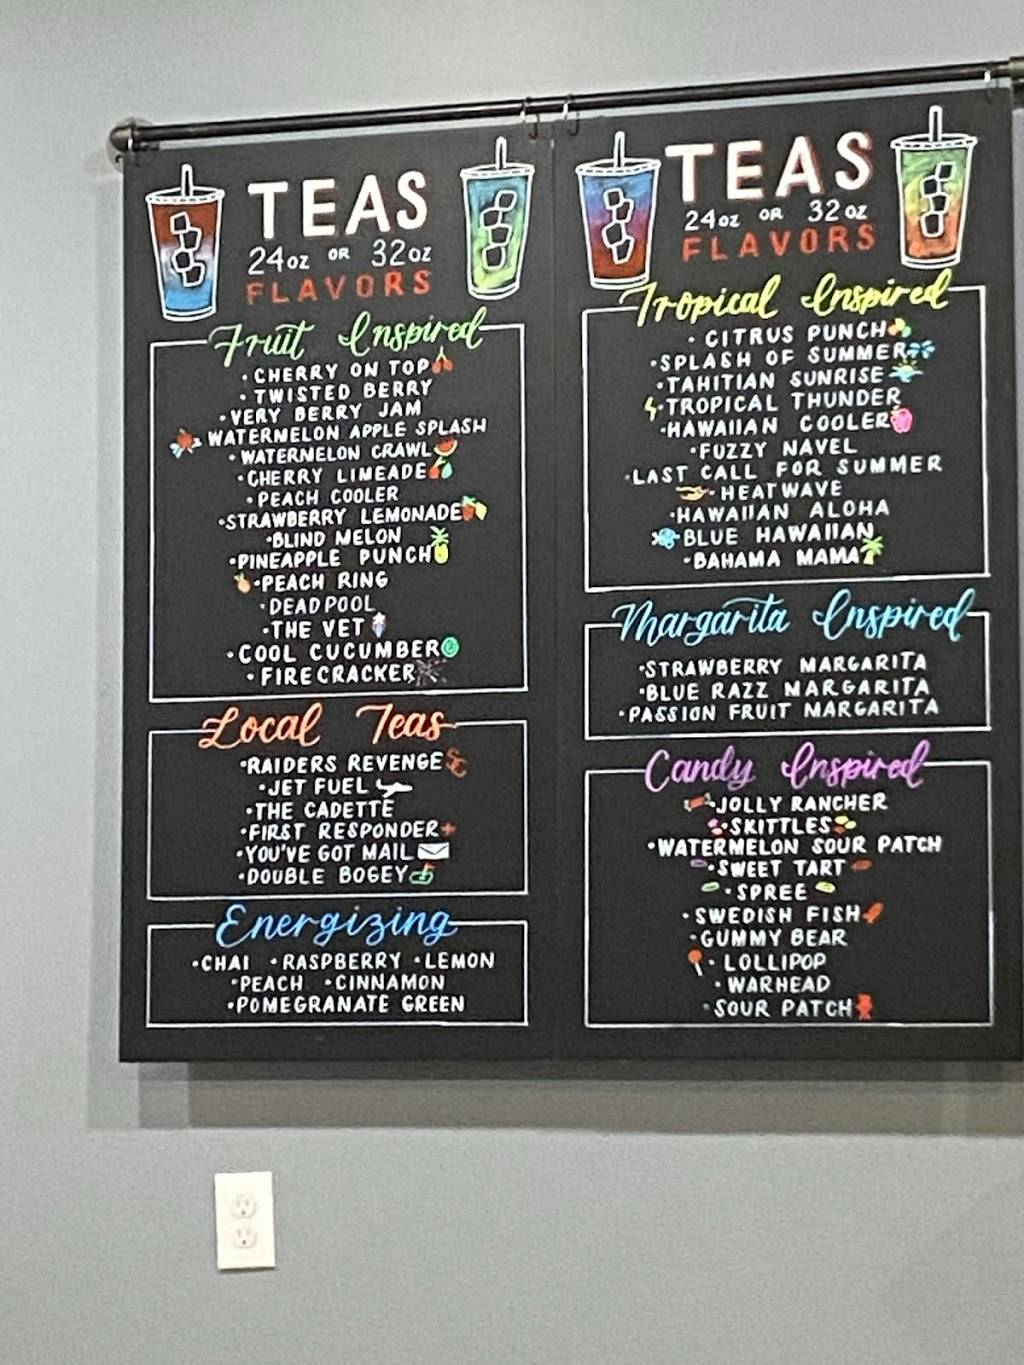 TEAS
24oz OR 32oz
FLAVORS
Fruit Inspired
• CHERRY ON TOP
• TWISTED BERRY
• VERY BERRY JAM
WATERMELON APPLE SPLASH
• WATERMELON CRAWL
• CHERRY LIMEADE
• PEACH COOLER
• STRAWBERRY LEMONADE
• BLIND MELON
• PINEAPPLE PUNCH
• PEACH RING
• DEADPOOL
• THE VET
• COOL CUCUMBER
• FIRECRACKER
Local Teas
• RAIDERS REVENGE
• JET FUEL
• THE CADETTE
• FIRST RESPONDER
• YOU'VE GOT MAIL
• DOUBLE BOGEY
Energizing
• CHAI • RASPBERRY • LEMON
• PEACH • CINNAMON
• POMEGRANATE GREEN
TEAS
24oz OR 32oz
FLAVORS
Tropical Inspired
• CITRUS PUNCH
• SPLASH OF SUMMER
• TAHITIAN SUNRISE
• TROPICAL THUNDER
• HAWAIIAN COOLER
• FUZZY NAVEL
• LAST CALL FOR SUMMER
• HEATWAVE
• HAWAIIAN ALOHA
• BLUE HAWAIIAN
• BAHAMA MAMA
Margarita Inspired
• STRAWBERRY MARGARITA
• BLUE RAZZ MARGARITA
• PASSION FRUIT MARGARITA
Candy Inspired
• JOLLY RANCHER
• SKITTLES
• WATERMELON SOUR PATCH
• SWEET TART
• SPREE
• SWEDISH FISH
• GUMMY BEAR
• LOLLIPOP
• WARHEAD
• SOUR PATCH